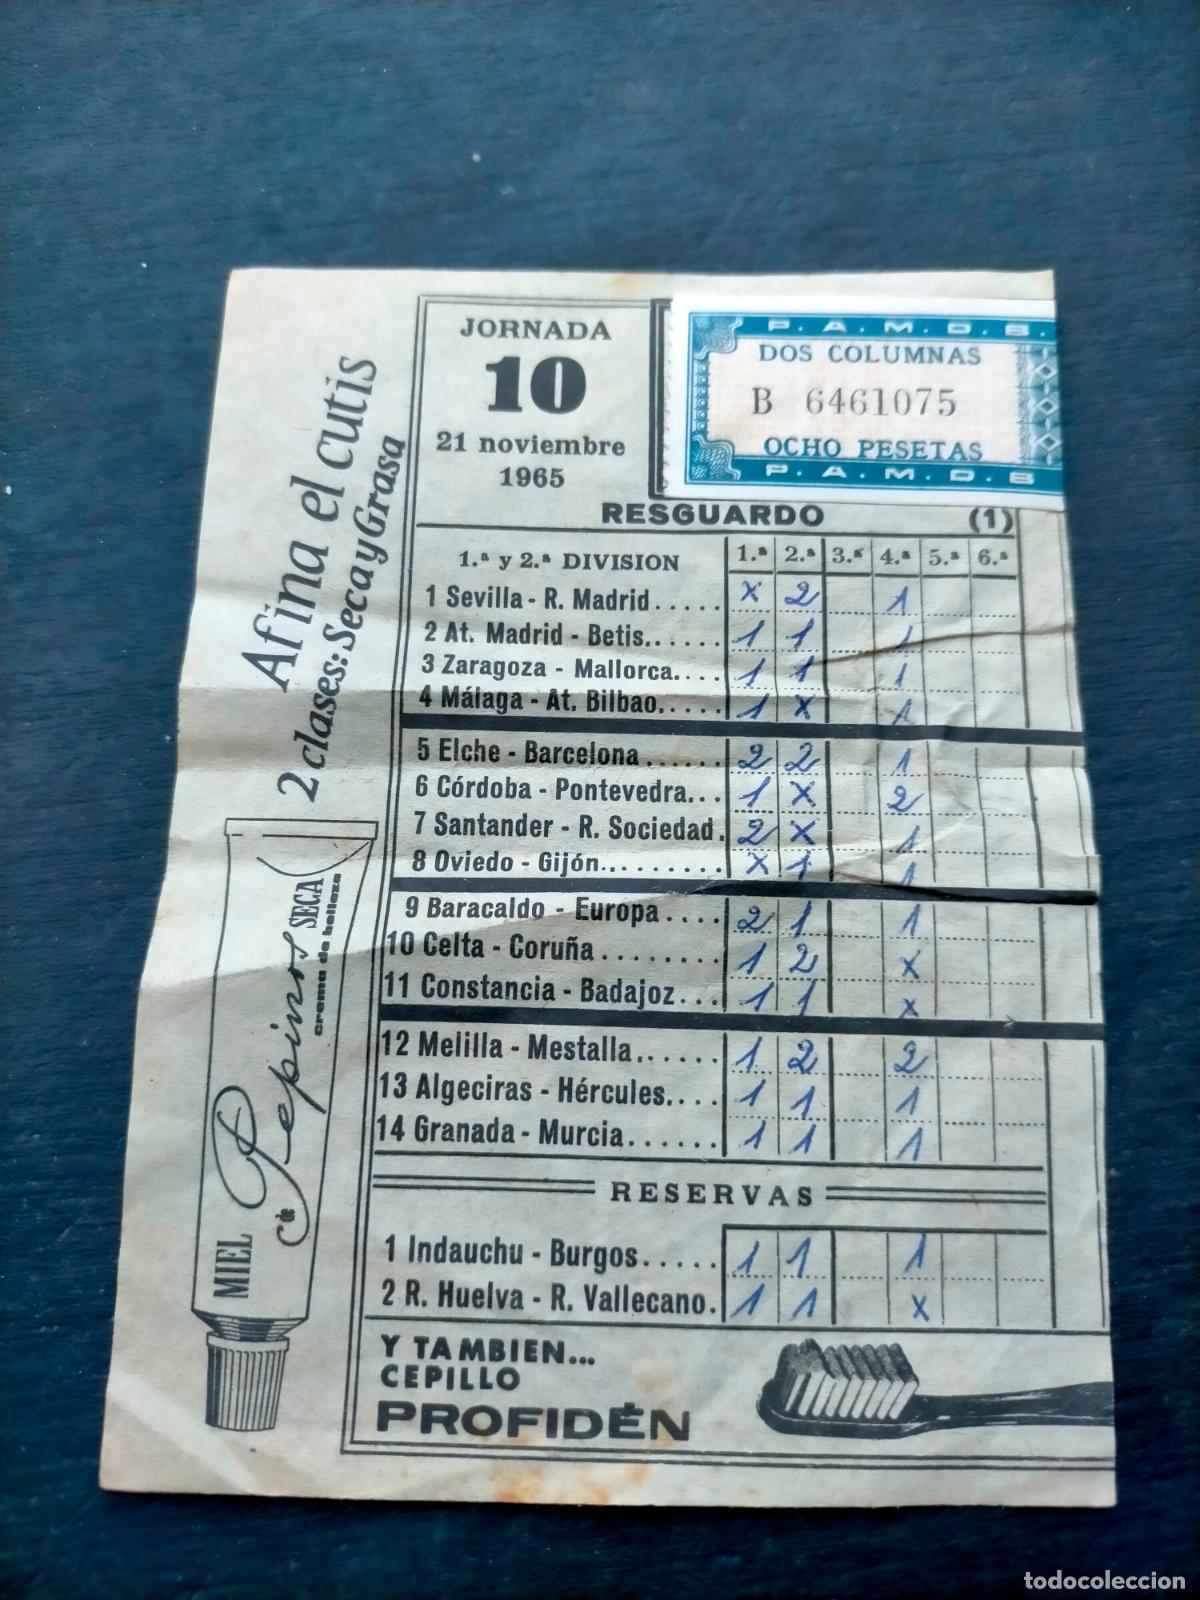 JORNADA
10
21 noviembre
1965
P. A. M. D. B.
DOS COLUMNAS
B 6461075
OCHO PESETAS
P. A. M. D. B
RESGUARDO (1)
1.ª y 2.ª DIVISION 1.ª 2.ª 3.ª 4.ª 5.ª 6.ª
1 Sevilla - R. Madrid..... x 2 1
2 At. Madrid - Betis...... 1 1 1
3 Zaragoza - Mallorca.... 1 1 1
4 Málaga - At. Bilbao..... 1 x 1
5 Elche - Barcelona...... 2 2 1
6 Córdoba - Pontevedra... 1 x 2
7 Santander - R. Sociedad. 2 x 1
8 Oviedo - Gijón......... x 1 1
9 Baracaldo - Europa.... 2 1 1
10 Celta - Coruña........ 1 2 x
11 Constancia - Badajoz... 1 1 x
12 Melilla - Mestalla...... 1 2 2
13 Algeciras - Hércules.... 1 1 1
14 Granada - Murcia...... 1 1 1
RESERVAS
1 Indauchu - Burgos..... 1 1 1
2 R. Huelva - R. Vallecano. 1 1 x
Y TAMBIEN...
CEPILLO
PROFIDÉN
Afina el cutis
2 clases: Seca y Grasa
MIEL
de Pepinos SECA
crema de belleza
todocoleccion